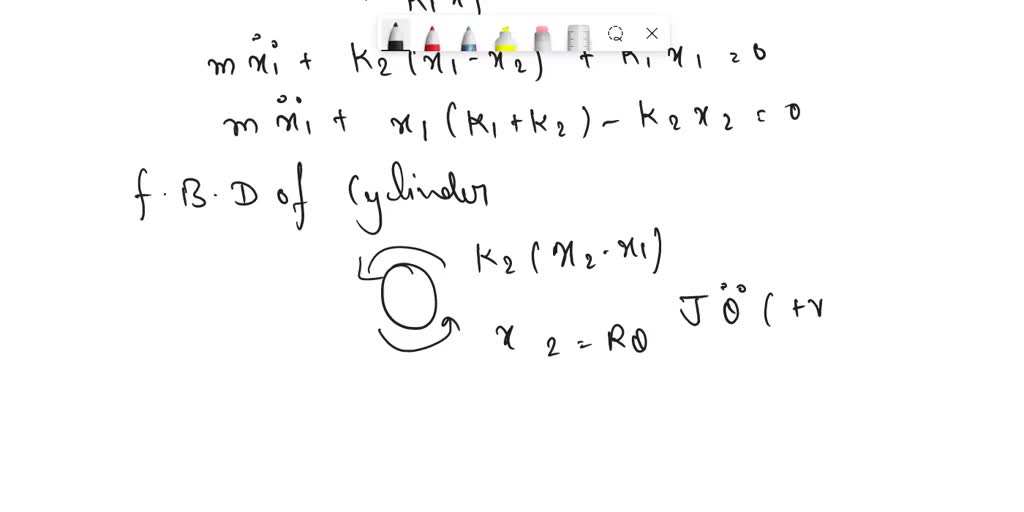 K₁x₁
mẍ₁ + K₂(x₁-x₂) + K₁x₁ = 0
mẍ₁ + x₁(K₁+K₂) - K₂x₂ = 0
F.B.D of Cylinder
K₂(x₂-x₁)
x₂ = Rθ Jθ̈ (+v